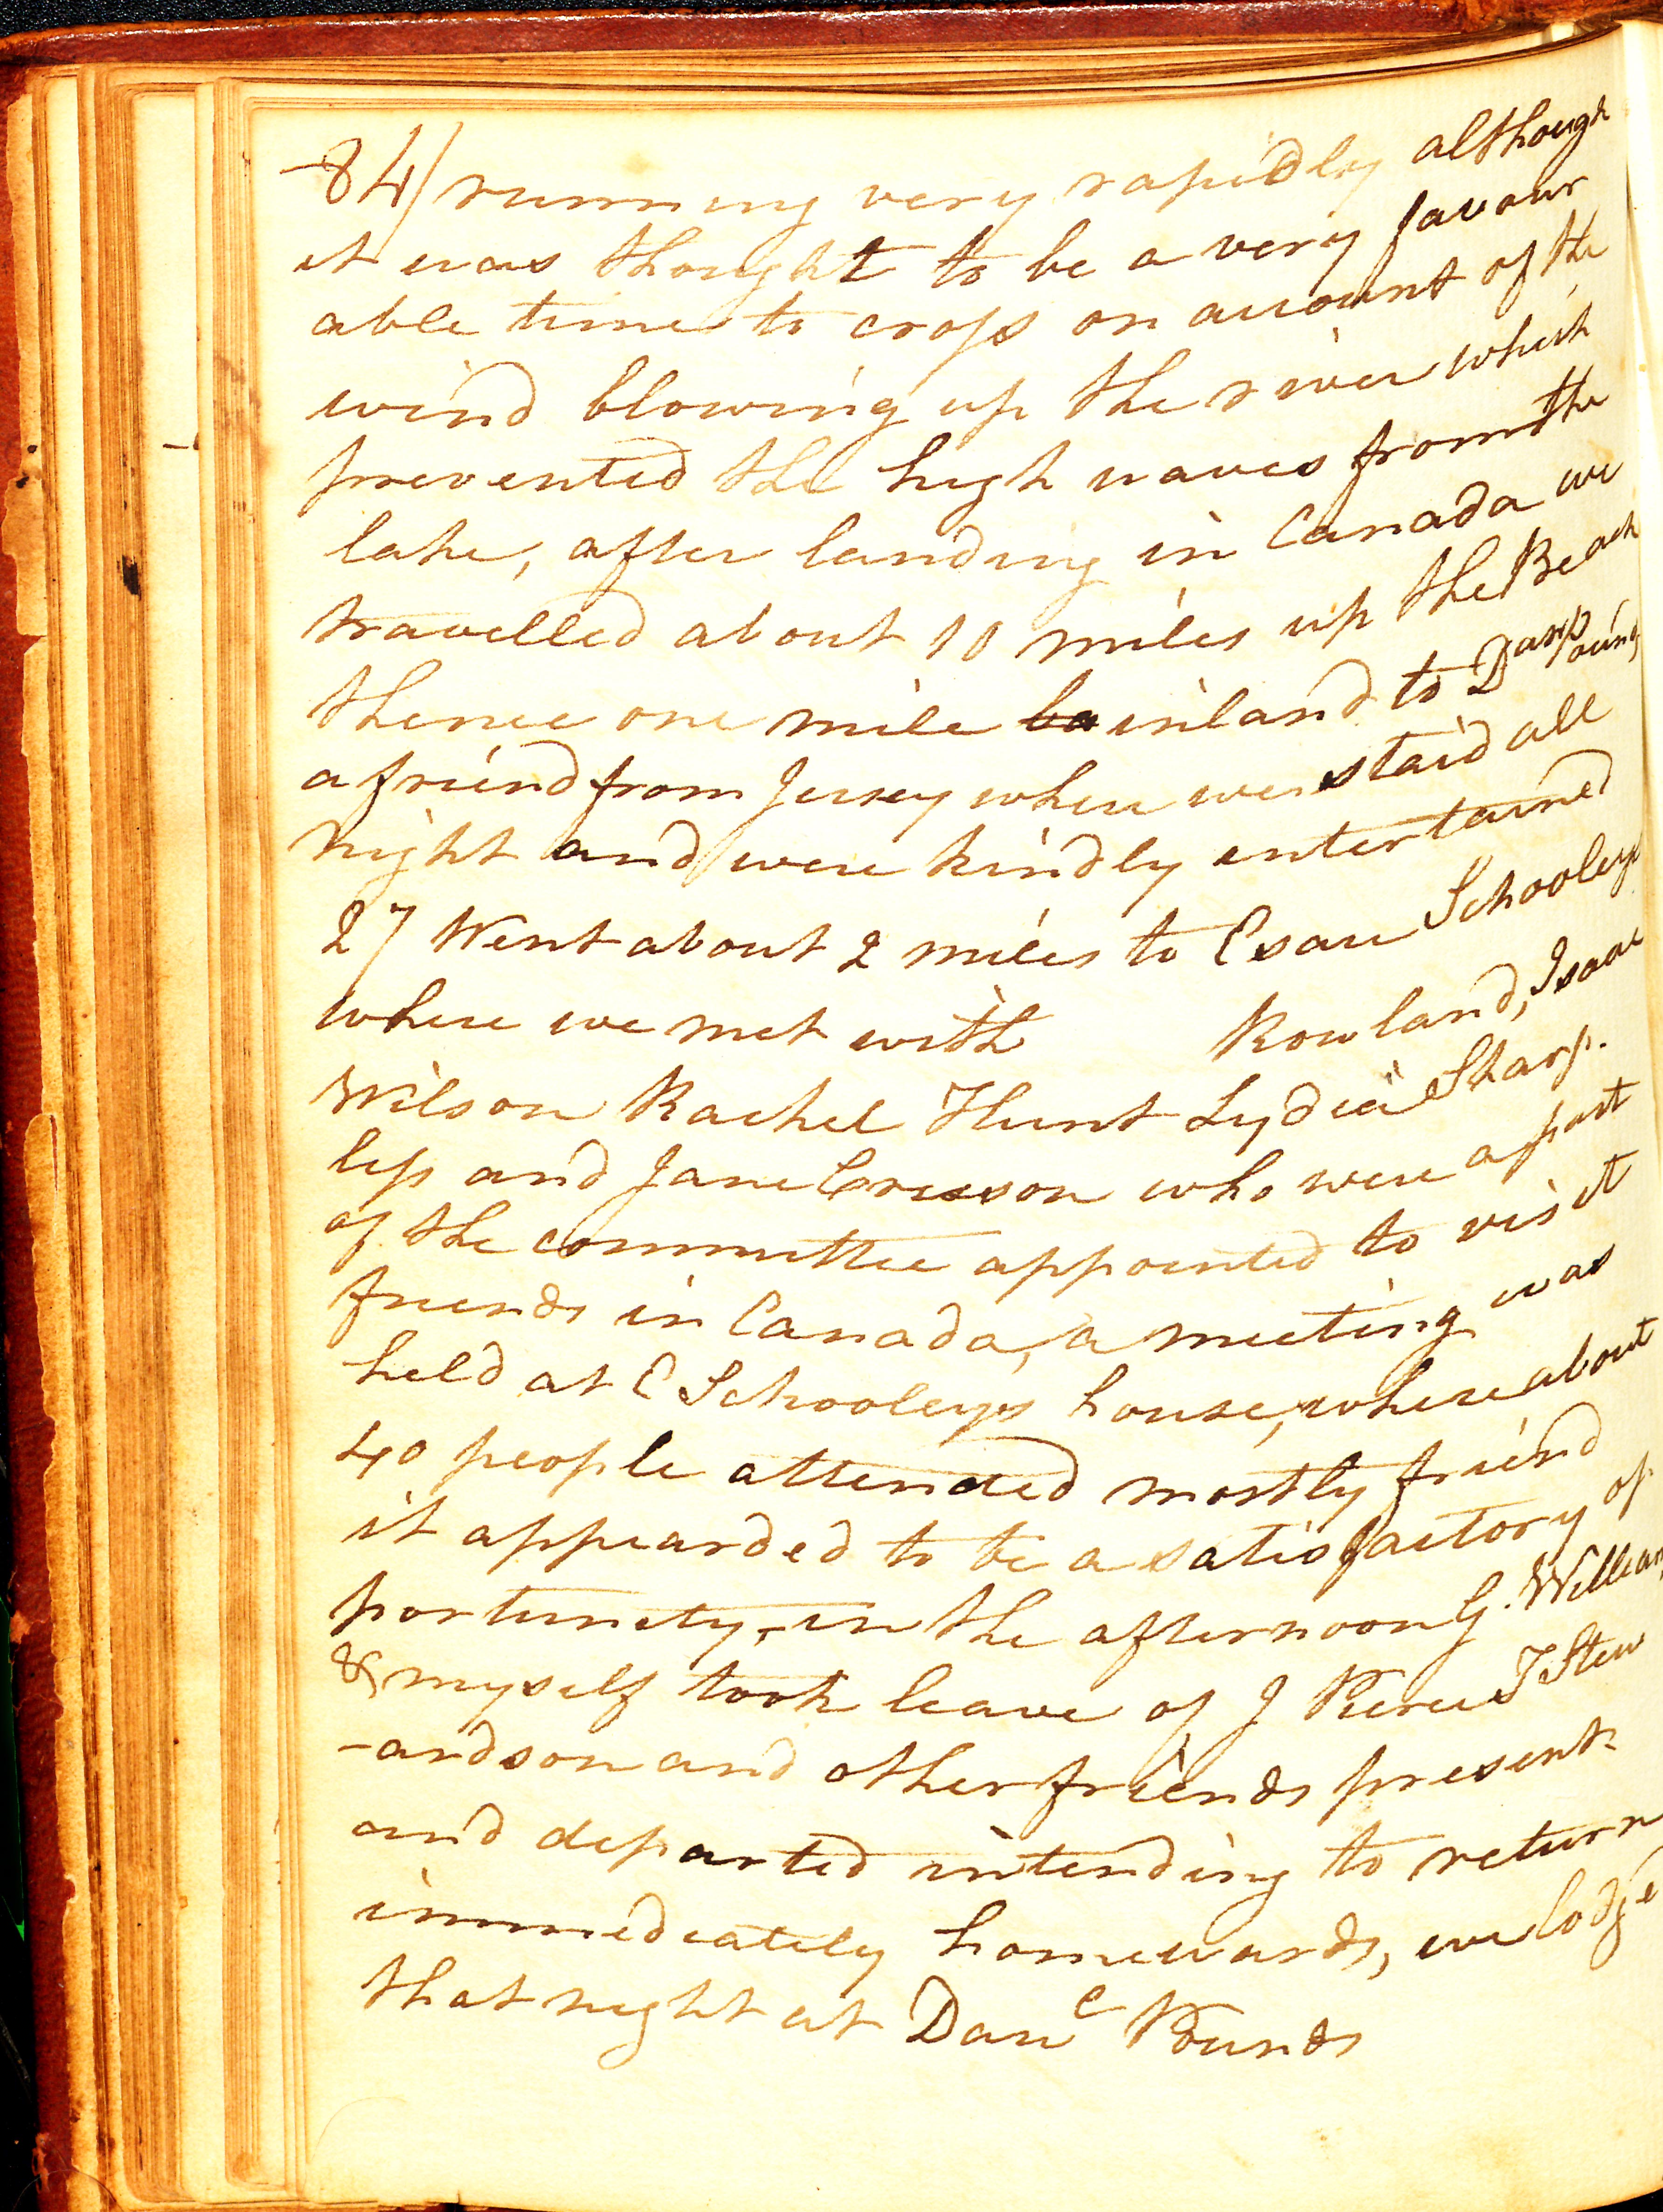 84/ running very rapidly although
it was thought to be a very favour
able time to cross on account of the
wind blowing up the river which
prevented the high waves from the
lake, after landing in Canada we
travelled about 10 miles up the Beach
thence one mile inland to Danl Pounds
a friend from Jersey where we staid all
night and were kindly entertained
27 Went about 2 miles to Esau Schooleys
where we met with Rowland, Isaac
Wilson Rachel Hunt Lydia Sharp.
less and Jane Cresson who were a part
of the committee appointed to visit
friends in Canada, a meeting was
held at E Schooleys house, where about
40 people attended mostly friend
it appearded to be a satisfactory op
portunety, in the afternoon G. William
& myself took leave of J Pierce J Stew
-ardson and other friends present
and departed intending to return
immediately homewards, we lodge
that night at Danl Pounds